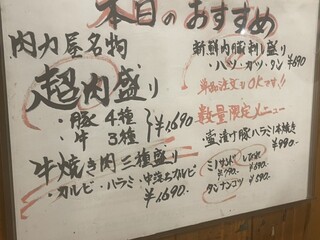 本日のおすすめ
肉力屋名物
超肉盛り
・豚 4種
・牛 3種
¥1,690
牛焼き肉三種盛り
・カルビ・ハラミ・中落ちカルビ
¥1,690-
新鮮肉豚刺し盛り
・ハツ・ガツ・タン ¥690
単品注文もOKです!!
数量限定メニュー
・塩漬け豚ハラミ1本焼き
¥990-
ミノサンド ¥790-
タンナンコツ ¥590